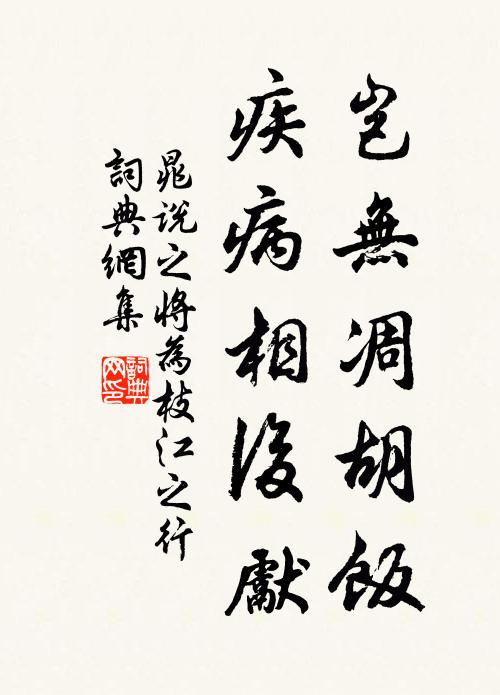 豈無凋胡飯
疾病相後獻
晁說之將為枝江之行
詞典網集
詞典
网印